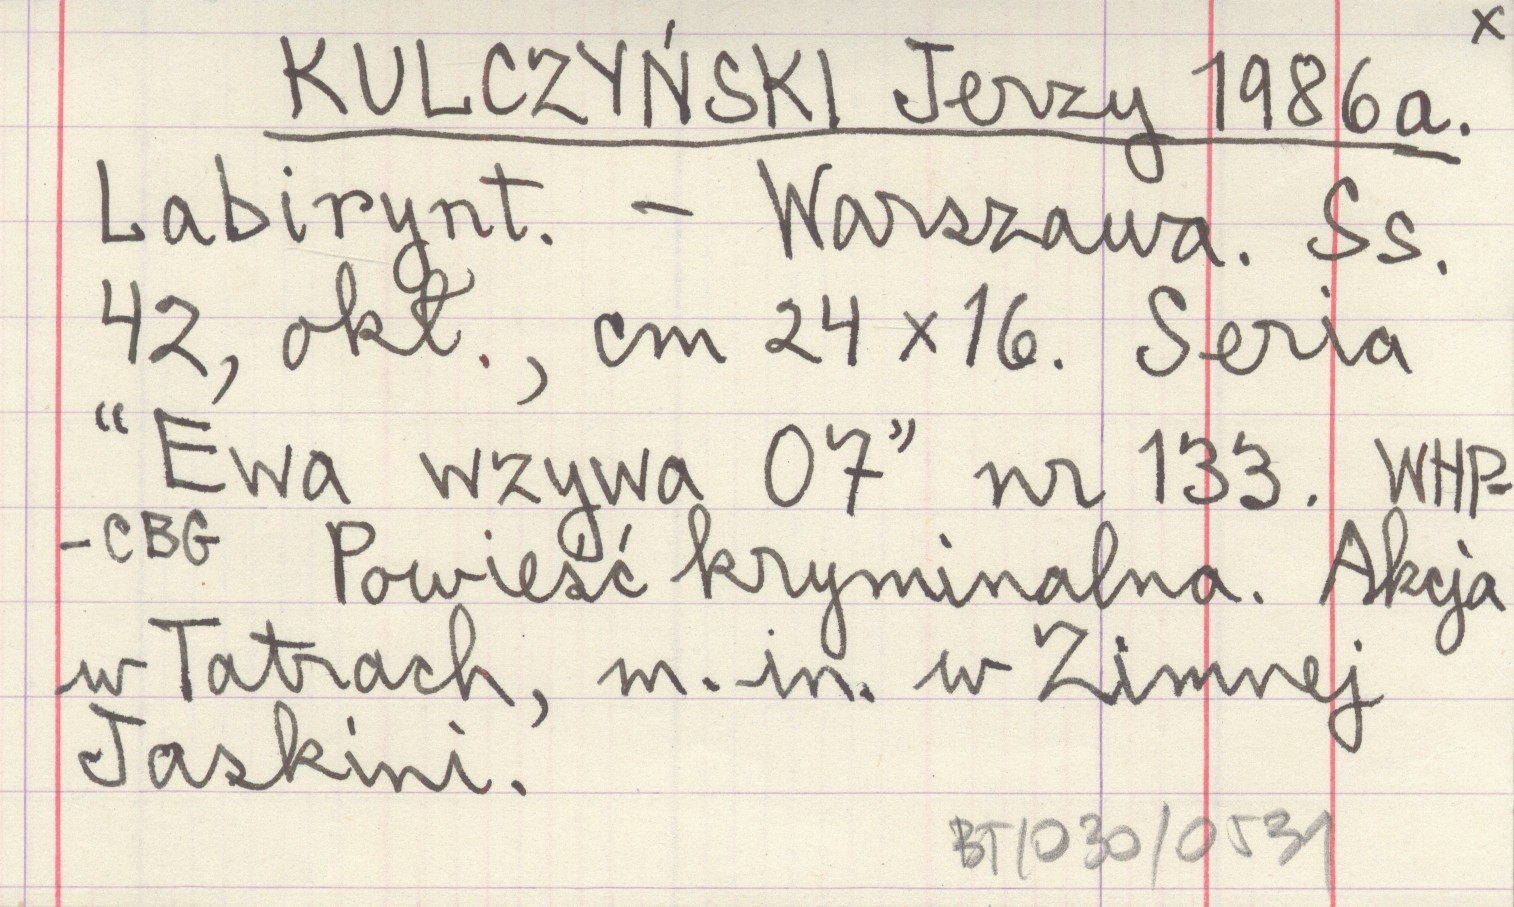 x
KULCZYŃSKI Jerzy 1986a.
Labirynt. – Warszawa. Ss.
42, okł., cm 24 x 16. Seria
“Ewa wzywa 07” nr 133. WHP-
-CBG Powieść kryminalna. Akcja
w Tatrach, m. in. w Zimnej
Jaskini.
BT/030/0531